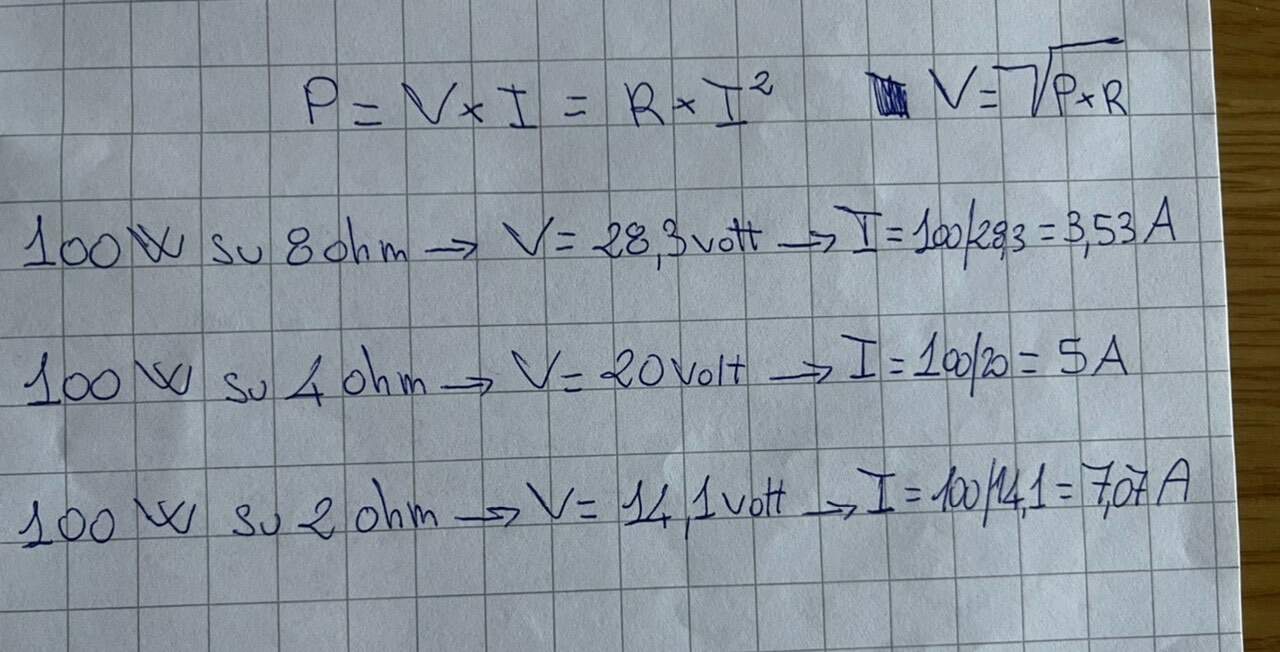 P = V x I = R x I² V = √P x R
100 W su 8 ohm → V = 28,3 volt → I = 100/28,3 = 3,53 A
100 W su 4 ohm → V = 20 volt → I = 100/20 = 5 A
100 W su 2 ohm → V = 14,1 volt → I = 100/14,1 = 7,07 A